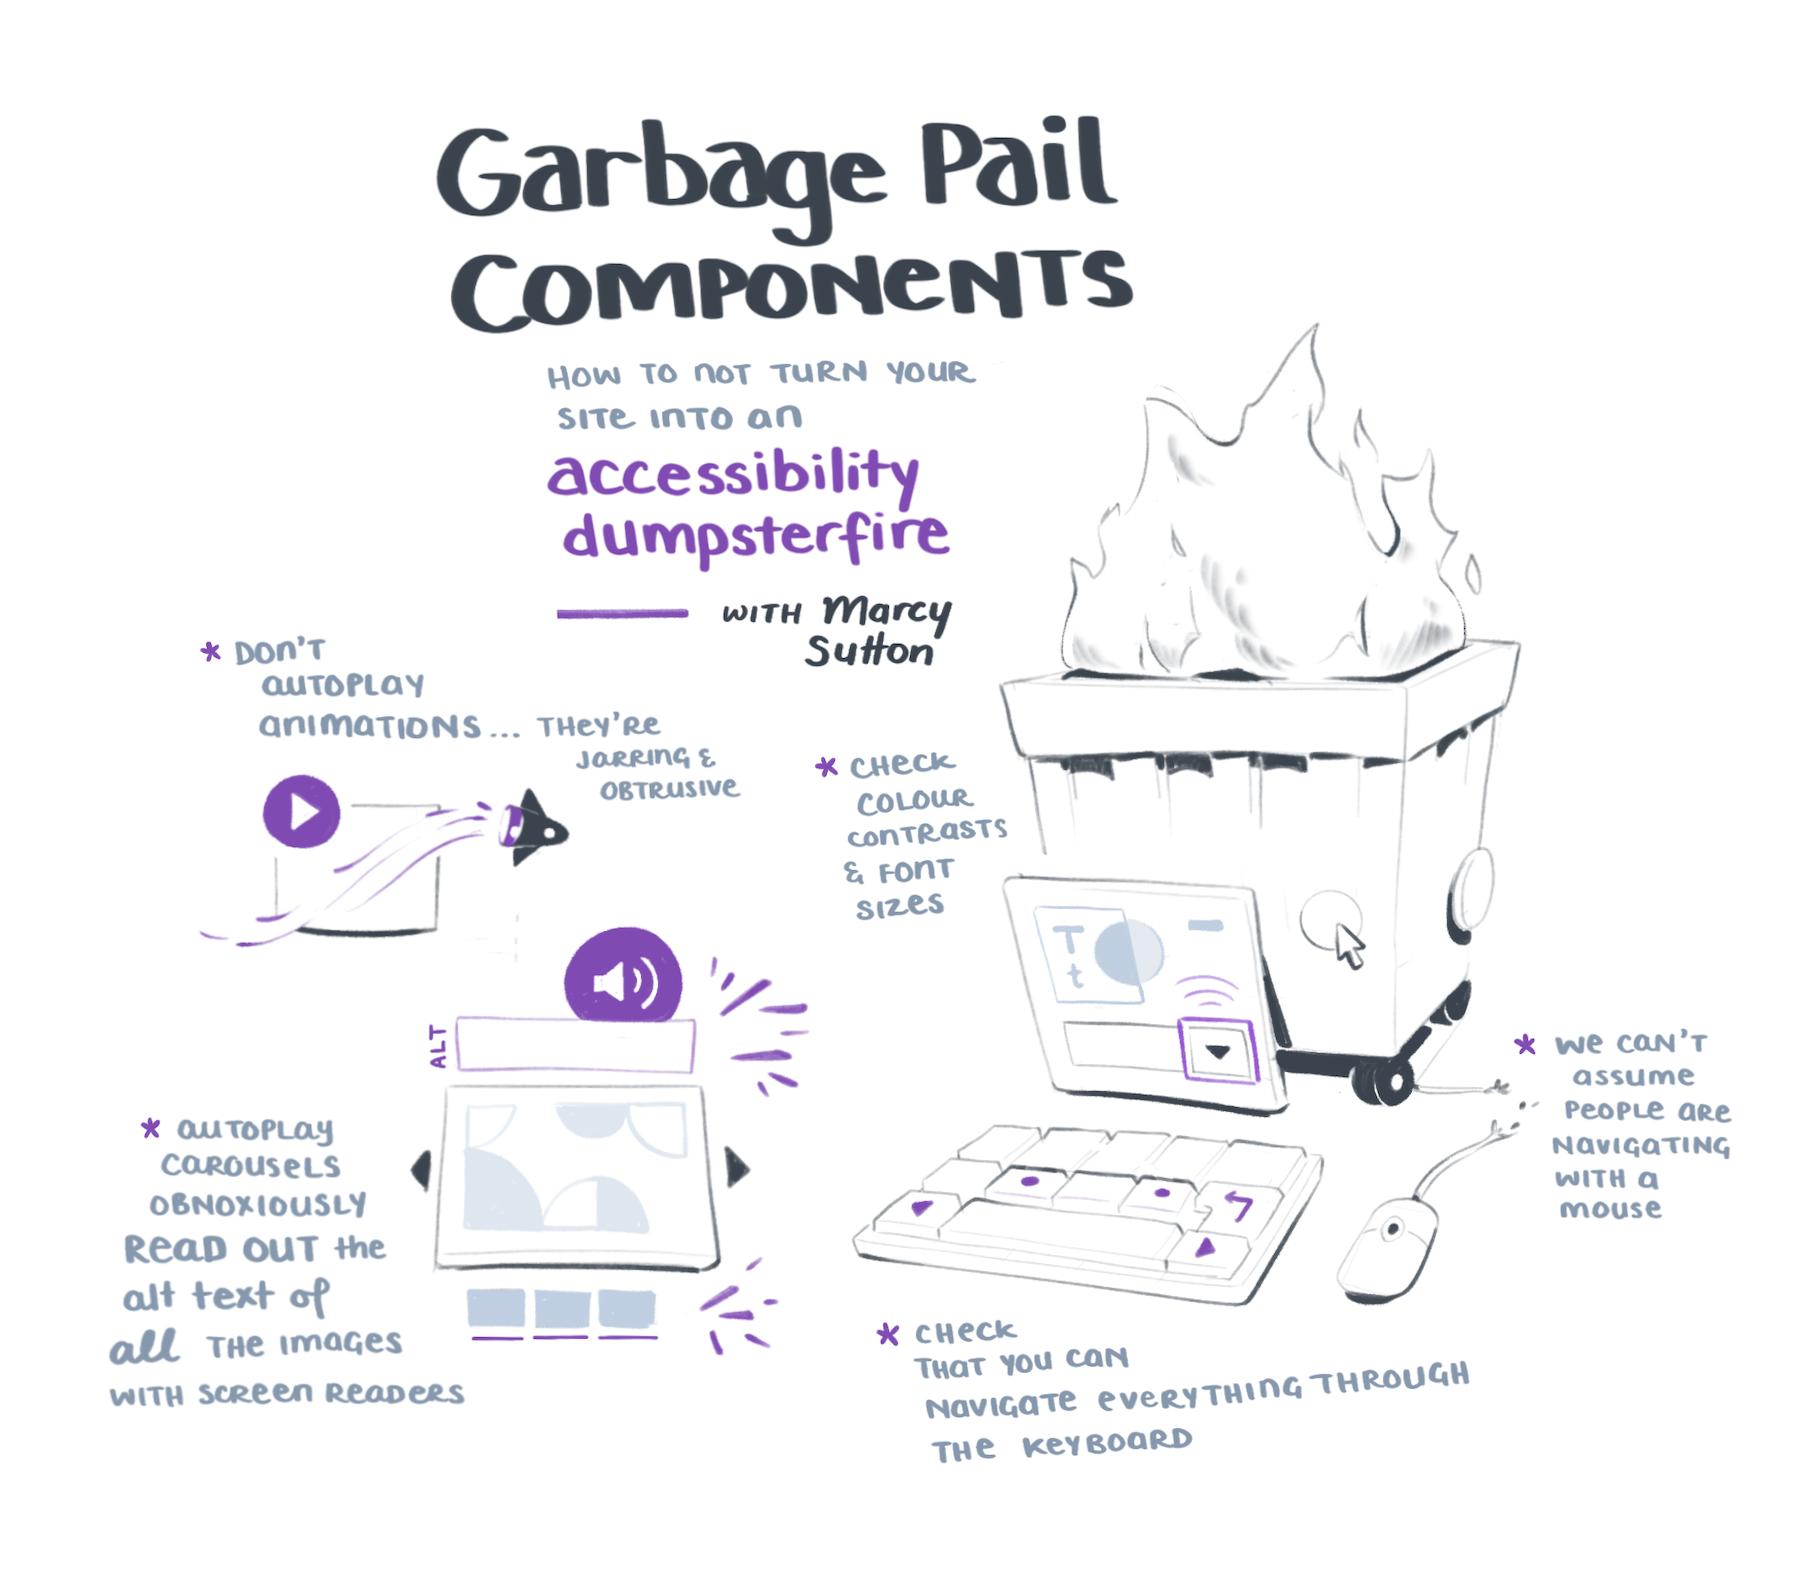 Garbage Pail
Components
How to not turn your
site into an
accessibility
dumpsterfire
with Marcy
Sutton
* Don't
autoplay
animations... they're
jarring &
obtrusive
* Check
colour
contrasts
& font
sizes
T
t
ALT
* autoplay
carousels
obnoxiously
Read out the
alt text of
all the images
with screen readers
* We can't
assume
people are
navigating
with a
mouse
* Check
that you can
navigate everything through
the keyboard